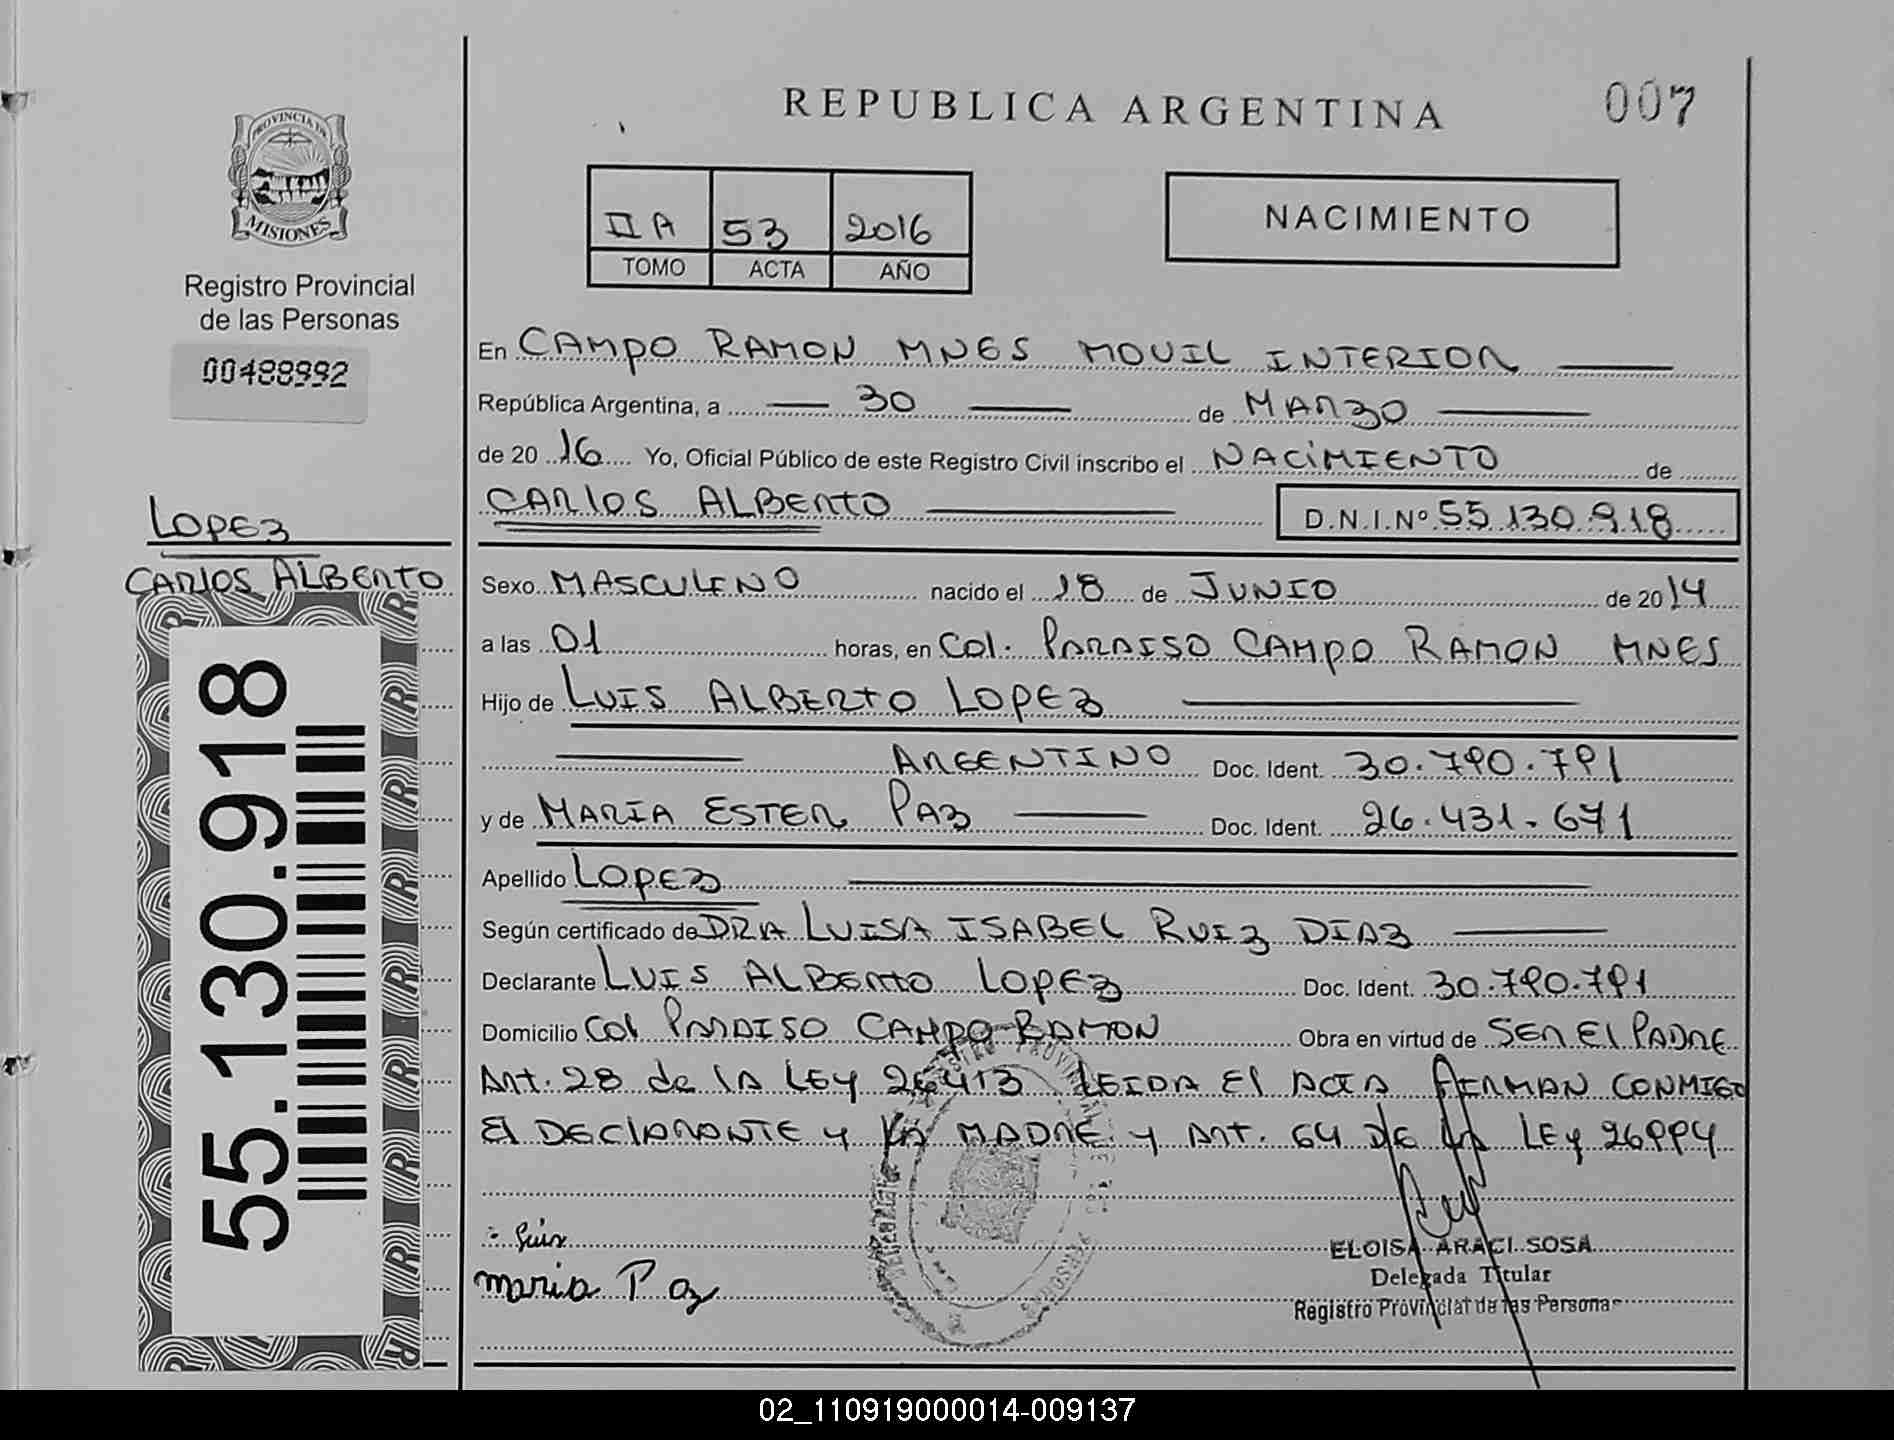 REPUBLICA ARGENTINA
007
PROVINCIA DE
MISIONES
Registro Provincial
de las Personas
00488992
II A 53 2016
TOMO ACTA AÑO
NACIMIENTO
En CAMPO RAMON MNES MOVIL INTERIOR
República Argentina, a 30 de MARZO
de 2016 Yo, Oficial Público de este Registro Civil inscribo el NACIMIENTO de
CARLOS ALBERTO D.N.I.Nº 55.130.918
LOPEZ
CARLOS ALBERTO
55.130.918
Sexo MASCULINO nacido el 18 de JUNIO de 2014
a las 01 horas, en Col. PARAISO CAMPO RAMON MNES
Hijo de LUIS ALBERTO LOPEZ
ARGENTINO Doc. Ident. 30.790.791
y de MARIA ESTER PAZ Doc. Ident. 26.431.671
Apellido LOPEZ
Según certificado de DRA LUISA ISABEL RUIZ DIAZ
Declarante LUIS ALBERTO LOPEZ Doc. Ident. 30.790.791
Domicilio Col PARAISO CAMPO RAMON Obra en virtud de SER El PADRE
Art. 28 de lA LEy 26413 LEIDA El ACTA FIRMAN CONMIGO
El DEClARANTE y lA MADRE y Art. 64 DE lA LEy 26994
Luis
maria Paz
ELOISA ARACI SOSA
Delegada Titular
Registro Provincial de las Personas
02_110919000014-009137